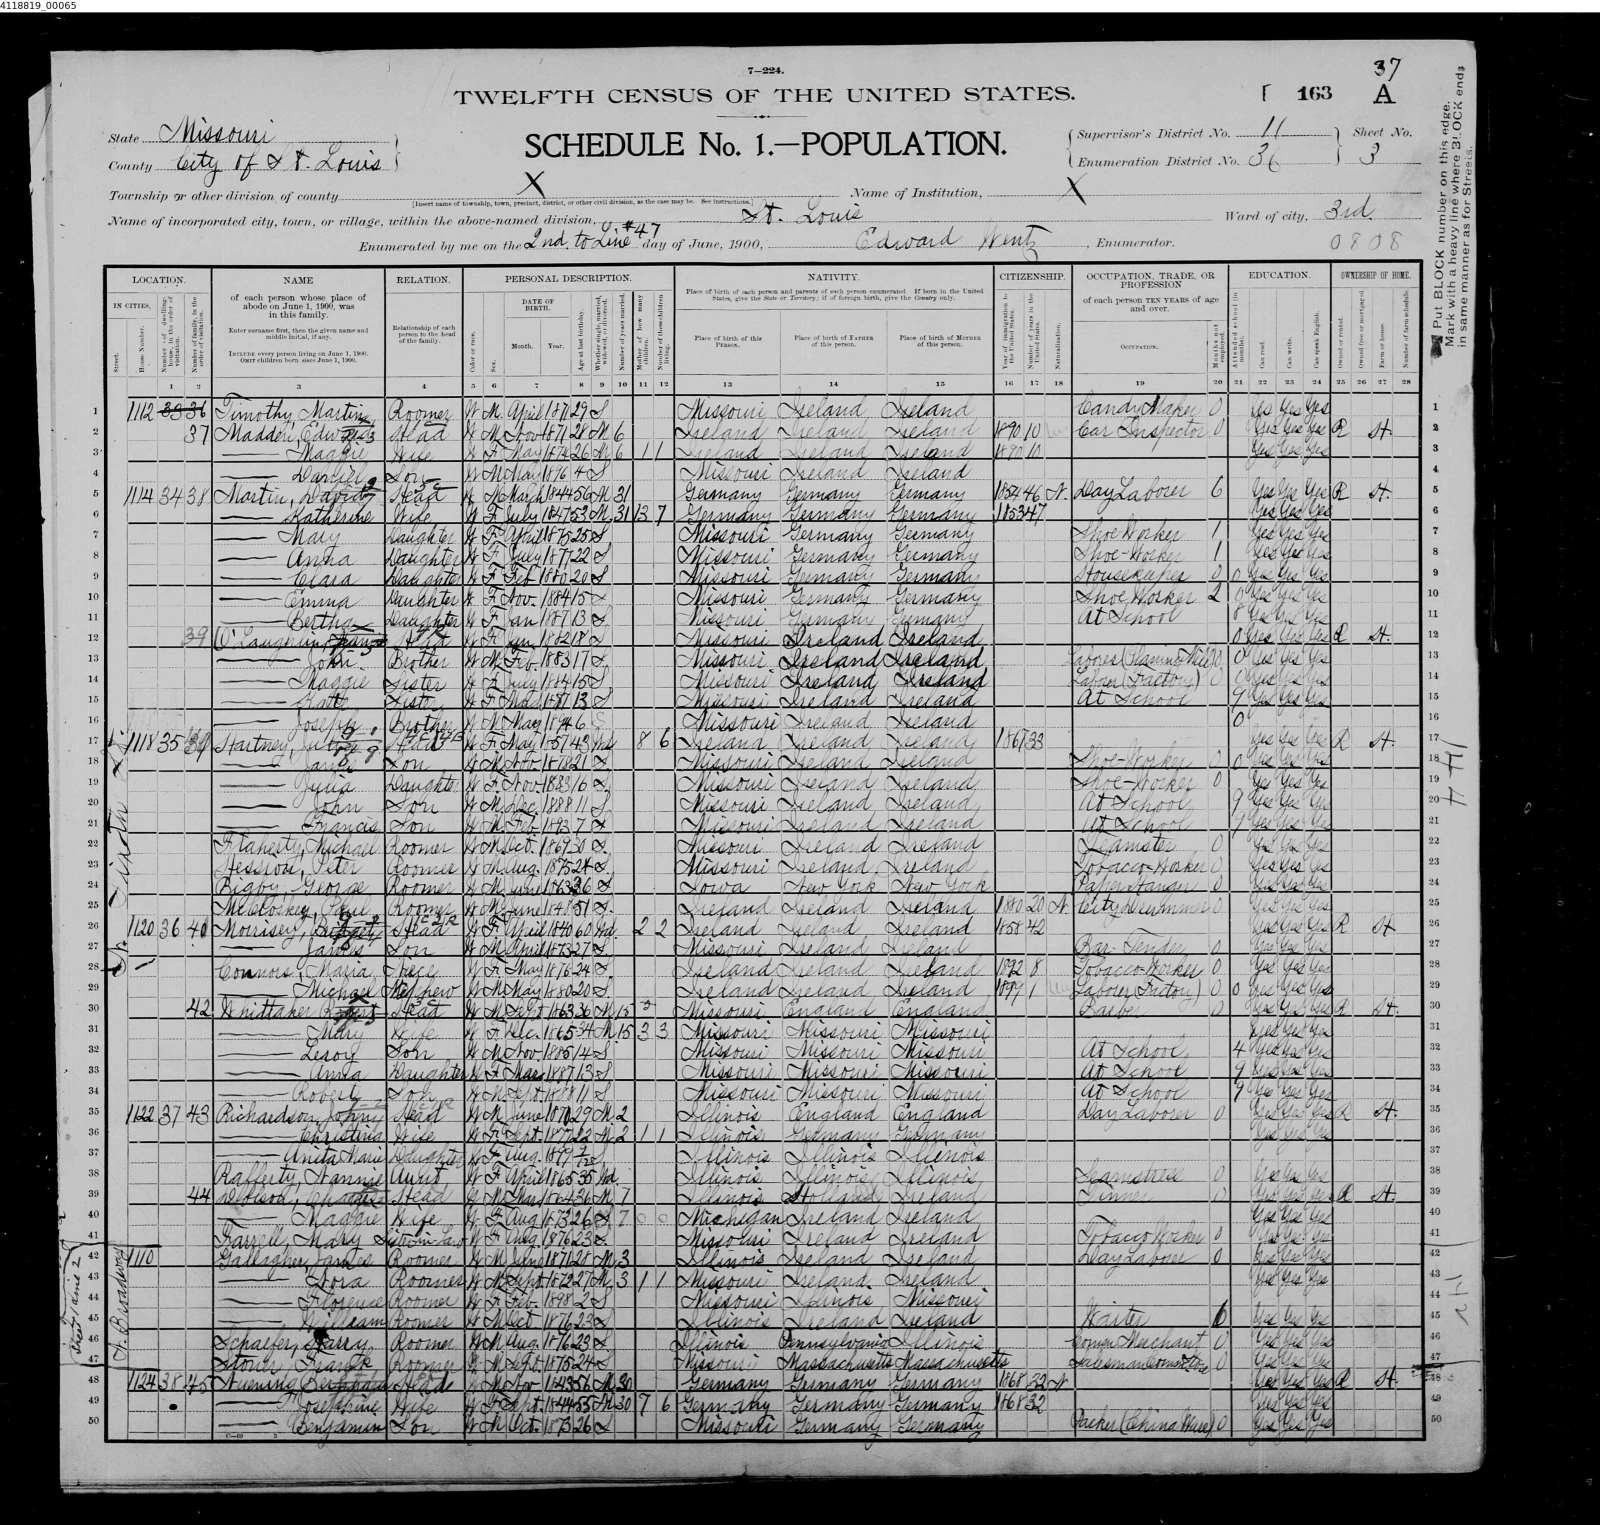 4118819_00065
7—224.
37
TWELFTH CENSUS OF THE UNITED STATES.
163 A
State Missouri
County City of St. Louis
SCHEDULE No. 1.—POPULATION.
Supervisor's District No. 11
Enumeration District No. 36
Sheet No. 3
Township or other division of county X
[Insert name of township, town, precinct, district, or other civil division, as the case may be. See instructions.]
Name of Institution, X
Name of incorporated city, town, or village, within the above-named division, St. Louis
Ward of city, 3rd.
Enumerated by me on the 2nd. to Line #47 day of June, 1900, Edward Wentz, Enumerator.
0808
Put BLOCK number on this edge.
Mark with a heavy line where BLOCK ends
in same manner as for Streets.
LOCATION. NAME RELATION. PERSONAL DESCRIPTION. NATIVITY. CITIZENSHIP. OCCUPATION, TRADE, OR PROFESSION EDUCATION. OWNERSHIP OF HOME.
IN CITIES.
of each person whose place of abode on June 1, 1900, was in this family.
Enter surname first, then the given name and middle initial, if any.
INCLUDE every person living on June 1, 1900.
OMIT children born since June 1, 1900.
Relationship of each person to the head of the family.
DATE OF BIRTH.
Month. Year.
Place of birth of each person and parents of each person enumerated. If born in the United States, give the State or Territory; if of foreign birth, give the Country only.
Place of birth of this PERSON.
Place of birth of FATHER of this person.
Place of birth of MOTHER of this person.
of each person TEN YEARS of age and over.
OCCUPATION.
1 2 3 4 5 6 7 8 9 10 11 12 13 14 15 16 17 18 19 20 21 22 23 24 25 26 27 28
1 1112 33 36 Timothy Martin Roomer W M April 1871 29 S Missouri Ireland Ireland Candy Maker 0 Yes Yes Yes 1
2 37 Madden, Edward Head W M Nov 1871 28 M 6 Ireland Ireland Ireland 1890 10 Car Inspector 0 Yes Yes Yes R H. 2
3 Maggie Wife W F May 1874 26 M 6 1 1 Ireland Ireland Ireland 1890 10 Yes Yes Yes 3
4 Daniel Son W M May 1896 4 S Missouri Ireland Ireland 4
5 1114 34 38 Martin, David Head W M March 1844 56 M 31 Germany Germany Germany 1854 46 N. Day Laborer 6 Yes Yes Yes R H. 5
6 Katherine Wife W F July 1847 53 M 31 13 7 Germany Germany Germany 1853 47 Yes Yes Yes 6
7 Mary Daughter W F April 1875 25 S Missouri Germany Germany Shoe Worker 1 Yes Yes Yes 7
8 Anna Daughter W F July 1877 22 S Missouri Germany Germany Shoe-Worker 1 Yes Yes Yes 8
9 Clara Daughter W F Feb 1880 20 S Missouri Germany Germany Housekeeper 0 0 Yes Yes Yes 9
10 Emma Daughter W F Nov. 1884 15 S Missouri Germany Germany Shoe Worker 2 0 Yes Yes Yes 10
11 Bertha Daughter W F Jan 1887 13 S Missouri Germany Germany At School 8 Yes Yes Yes 11
12 39 O'Laughlin, Head W F Jan 1882 18 S Missouri Ireland Ireland 0 Yes Yes Yes R H. 12
13 John Brother W M Feb. 1883 17 S Missouri Ireland Ireland Laborer (Planing Mill) 0 0 Yes Yes Yes 13
14 Maggie Sister W F July 1884 15 S Missouri Ireland Ireland Labor (Factory) 0 0 Yes Yes Yes 14
15 Kate Sister W F 1887 13 S Missouri Ireland Ireland At School 9 Yes Yes Yes 15
16 Joseph Brother W M May 1894 6 S Missouri Ireland Ireland 0 16
17 1118 35 Hartney, Julia Head W F May 1857 43 Wd 8 6 Ireland Ireland Ireland 1867 33 Yes Yes Yes R H. 17
18 James Son W M Nov 1878 21 S Missouri Ireland Ireland Shoe-Worker 0 0 Yes Yes Yes 18
19 Julia Daughter W F Nov 1883 16 S Missouri Ireland Ireland Shoe-Worker 0 Yes Yes Yes 19
20 John Son W M Dec 1888 11 S Missouri Ireland Ireland At School 9 Yes Yes Yes 20
21 Francis Son W M Feb 1893 7 S Missouri Ireland Ireland At School 9 Yes Yes Yes 21
22 Flaherty, Michael Roomer W M Oct. 1869 30 S Missouri Ireland Ireland Teamster 0 Yes Yes Yes 22
23 Hession, Peter Roomer W M Aug. 1875 24 S Missouri Ireland Ireland Tobacco-Worker 0 Yes Yes Yes 23
24 Rigby, George Roomer W M June 1863 36 S Iowa New York New York Paper Hanger 0 Yes Yes Yes 24
25 McCloskey, Paul Roomer W M June 1848 51 S Ireland Ireland Ireland 1880 20 N City Drummer 0 Yes Yes Yes 25
26 1120 36 40 Morrisey, Bridget Head W F April 1840 60 Wd. 2 2 Ireland Ireland Ireland 1858 42 Yes Yes Yes R H. 26
27 James Son W M April 1873 27 S Missouri Ireland Ireland Bar-Tender 0 Yes Yes Yes 27
28 Connors, Maria Niece W F May 1876 24 S Ireland Ireland Ireland 1892 8 Tobacco-Worker 0 Yes Yes Yes 28
29 Michael Nephew W M May 1880 20 S Ireland Ireland Ireland 1899 1 Laborer (Factory) 0 0 Yes Yes Yes 29
30 42 Whittaker Robert Head W M Sept 1863 36 M 15 Missouri England England Barber 0 Yes Yes Yes R H. 30
31 Mary Wife W F Dec. 1865 34 M 15 3 3 Missouri Missouri Missouri Yes Yes Yes 31
32 Leroy Son W M Nov. 1885 14 S Missouri Missouri Missouri At School 4 Yes Yes Yes 32
33 Anna Daughter W F Mar 1887 13 S Missouri Missouri Missouri At School 9 Yes Yes Yes 33
34 Robert Son W M Sept. 1888 11 S Missouri Missouri Missouri At School 9 Yes Yes Yes 34
35 1122 37 43 Richardson, Johny Head W M June 1870 29 M 2 Illinois England England Day Laborer 0 Yes Yes Yes R H. 35
36 Christina Wife W F Sept. 1877 22 M 2 1 1 Illinois Germany Germany Yes Yes Yes 36
37 Anita Marie Daughter W F Aug. 1899 S Illinois Illinois Illinois 37
38 Rafferty, Nannie Aunt W F April 1865 35 Wd. Illinois Illinois Illinois Seamstress 0 Yes Yes Yes 38
39 44 Head W M May 1864 36 M 7 Illinois Holland Ireland Tinner 0 Yes Yes Yes R H. 39
40 Maggie Wife W F Aug 1873 26 7 0 0 Michigan Ireland Ireland Yes Yes Yes 40
41 Farrell, Mary Sister in Law W F Aug. 1876 23 S Missouri Ireland Ireland Tobacco Worker 0 Yes Yes Yes 41
42 1110 Gallagher, James Roomer W M June 1871 28 M 3 Illinois Ireland Ireland Day Laborer 0 Yes Yes Yes 42
43 Nora Roomer W M Sept. 1872 27 M 3 1 1 Missouri Ireland Ireland Yes Yes Yes 43
44 Florence Roomer W F Feb. 1898 2 S Missouri Illinois Missouri 44
45 William Roomer W M Oct. 1876 23 S Illinois Ireland Ireland Waiter 6 Yes Yes Yes 45
46 Schaefer, Harry Roomer W M Aug. 1876 23 S Illinois Pennsylvania Illinois Merchant 0 Yes Yes Yes 46
47 Stover, Frank Roomer W M Sept. 1875 24 S Missouri Massachusetts Massachusetts Salesman 0 Yes Yes Yes 47
48 1124 38 45 Nuening, Head W M Nov 1843 56 M 30 Germany Germany Germany 1868 32 N Yes Yes Yes R H. 48
49 Josephine Wife W F Sept. 1844 55 M 30 7 6 Germany Germany Germany 1868 32 Yes Yes Yes 49
50 Benjamin Son W M Oct. 1873 26 S Missouri Germany Germany Packer (China Ware) 0 Yes Yes Yes 50
N. Broadway